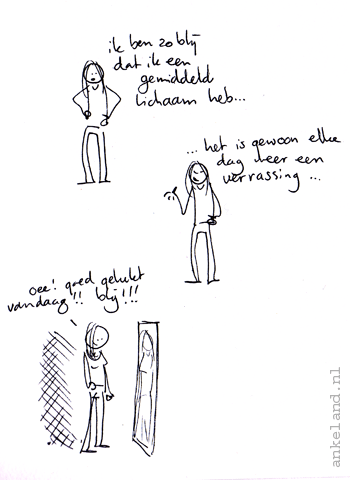 ik ben zo blij
dat ik een
gemiddeld
lichaam heb...
... het is gewoon elke
dag weer een
verrassing ...
oee! goed gelukt
vandaag!! blij!!!
ankeland.nl